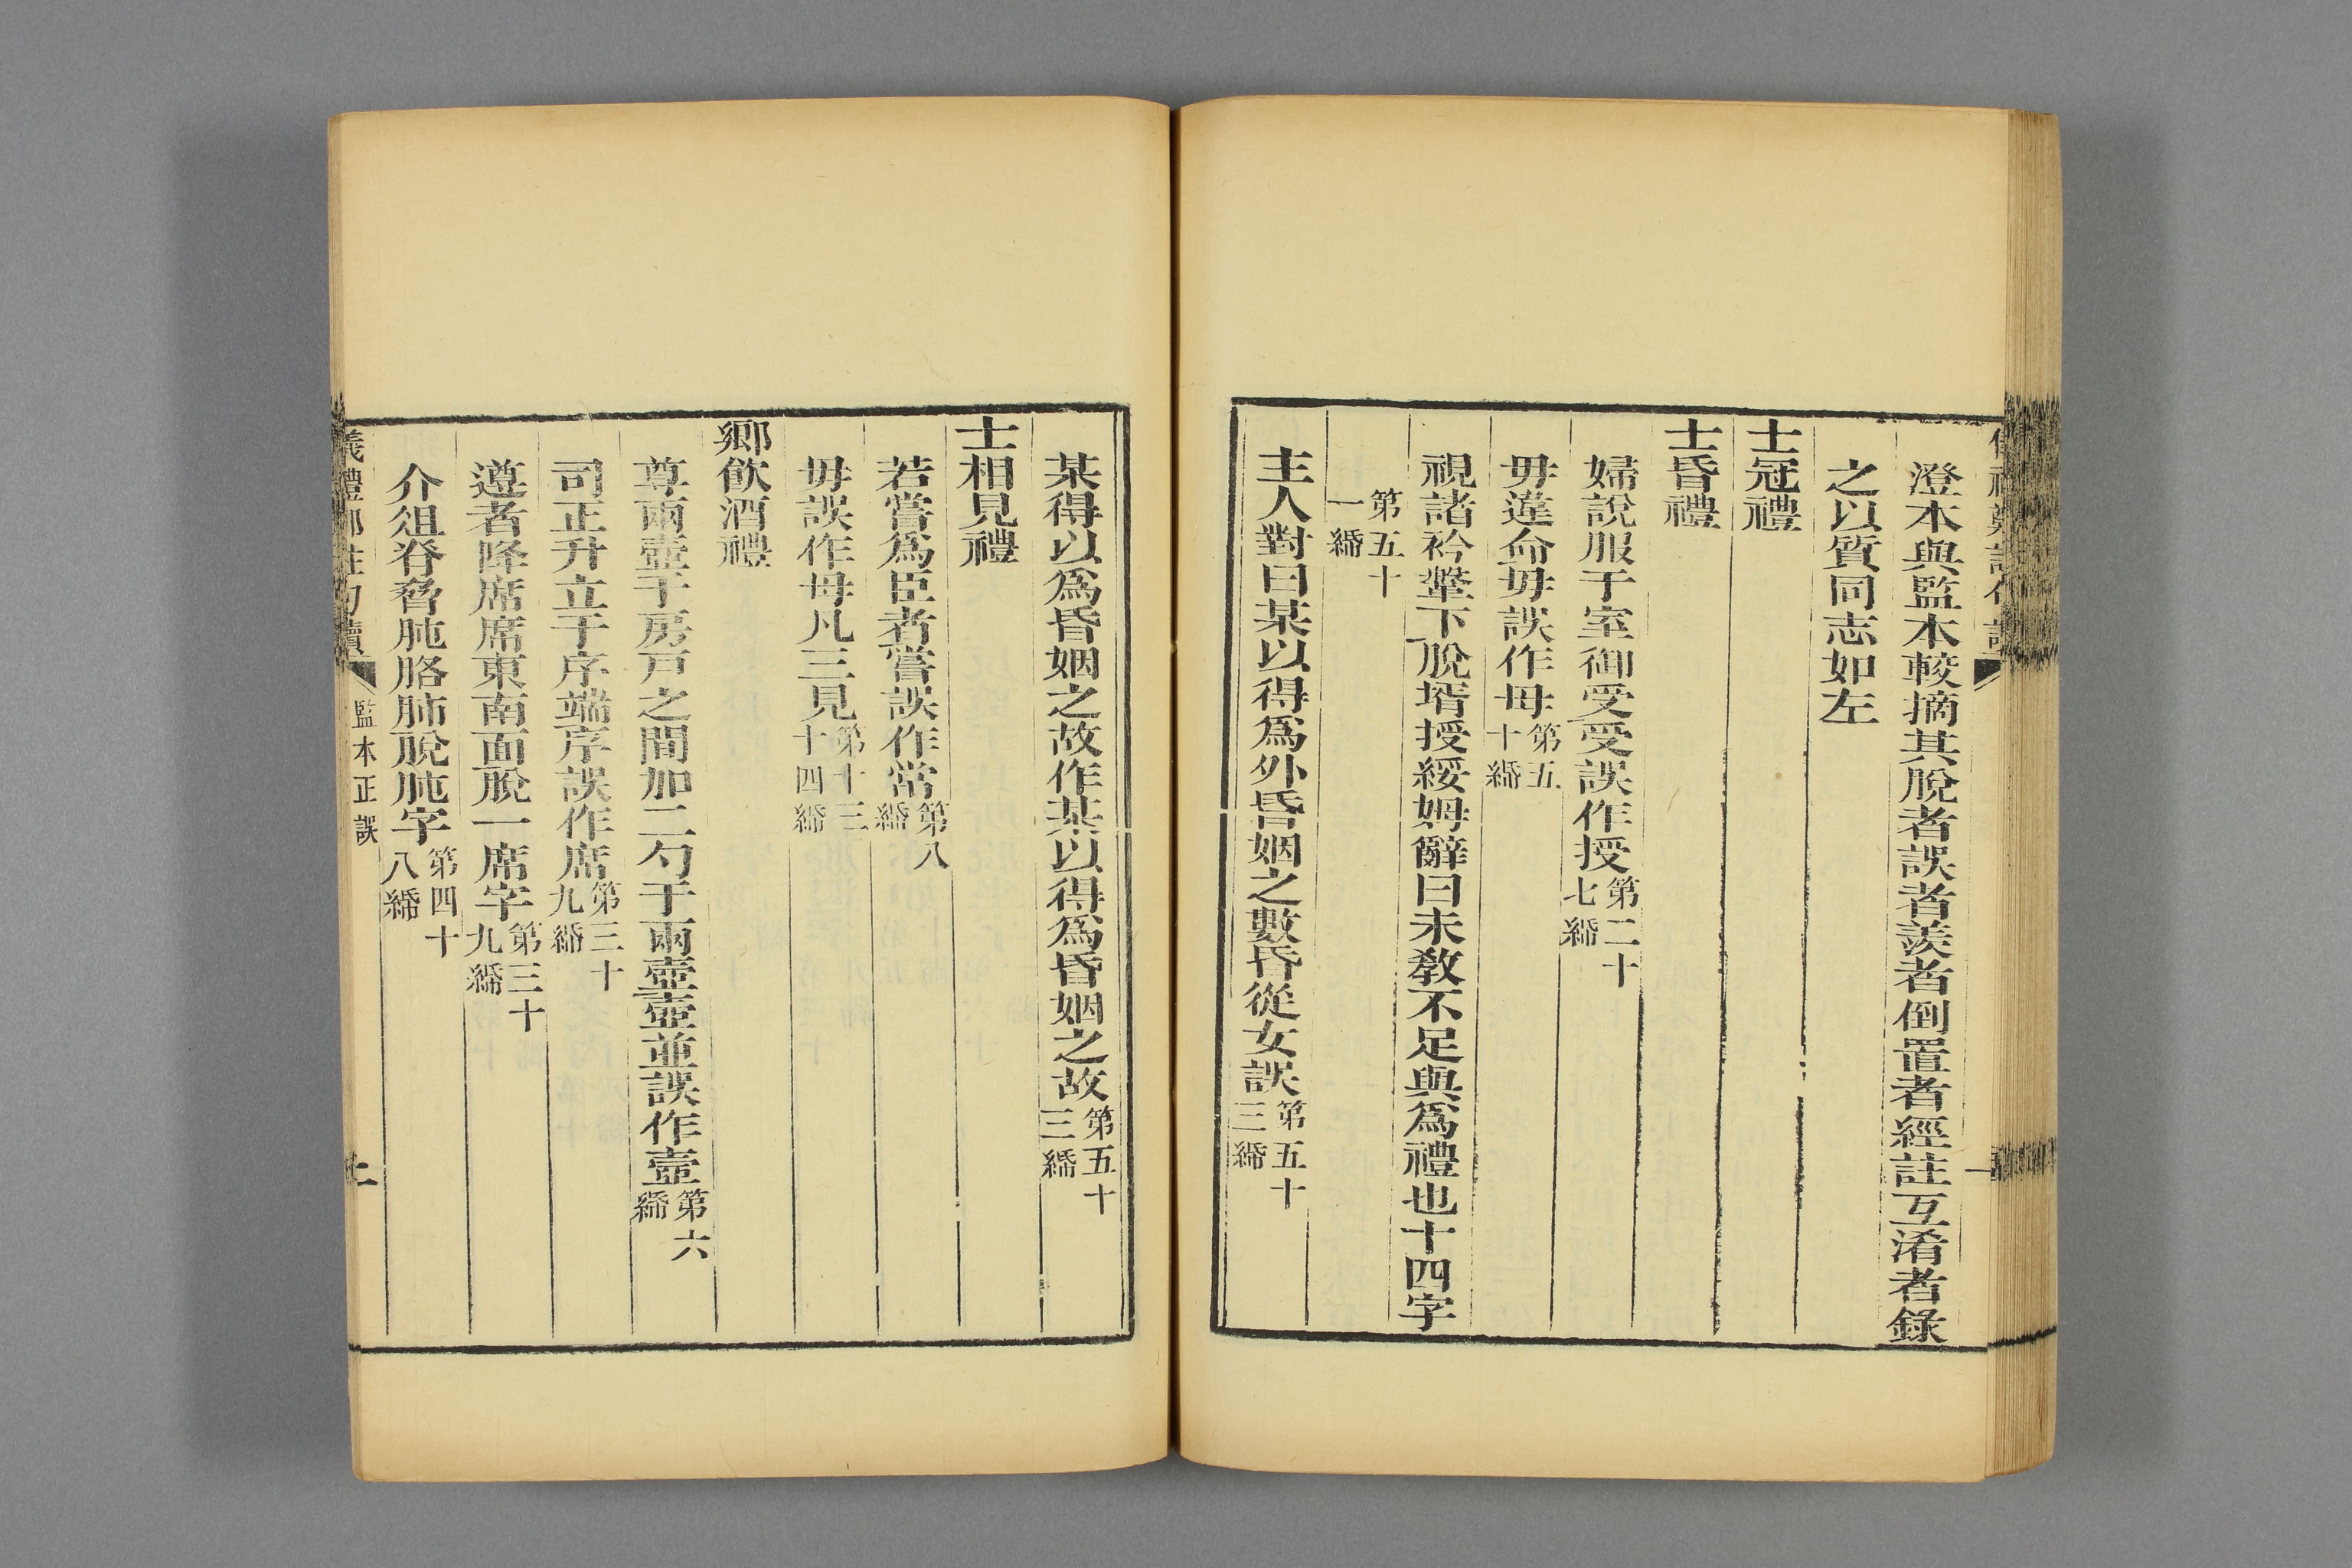 澄本與監本較摘其脫者誤者羨者倒置者經註互淆者錄
之以質同志如左
士冠禮
士昏禮
婦說服于室御受受誤作授第二十七繙
毋違命毋誤作母第五十繙
視諸衿鞶下脫壻授綏姆辭曰未敎不足與為禮也十四字
第五十一繙
主人對曰某以得為外昏姻之數昏從女誤第五十三繙
某得以為昏姻之故作某以得為昏姻之故第五十三繙
士相見禮
若嘗為臣者嘗誤作常第八繙
毋誤作母凡三見第十三十四繙
鄉飲酒禮
尊兩壺于房戶之間加二勺于兩壺壺並誤作壼第六繙
司正升立于序端序誤作席第三十九繙
遵者降席席東南面脫一席字第三十九繙
介俎脊脅肫胳肺脫肫字第四十八繙
監本正誤